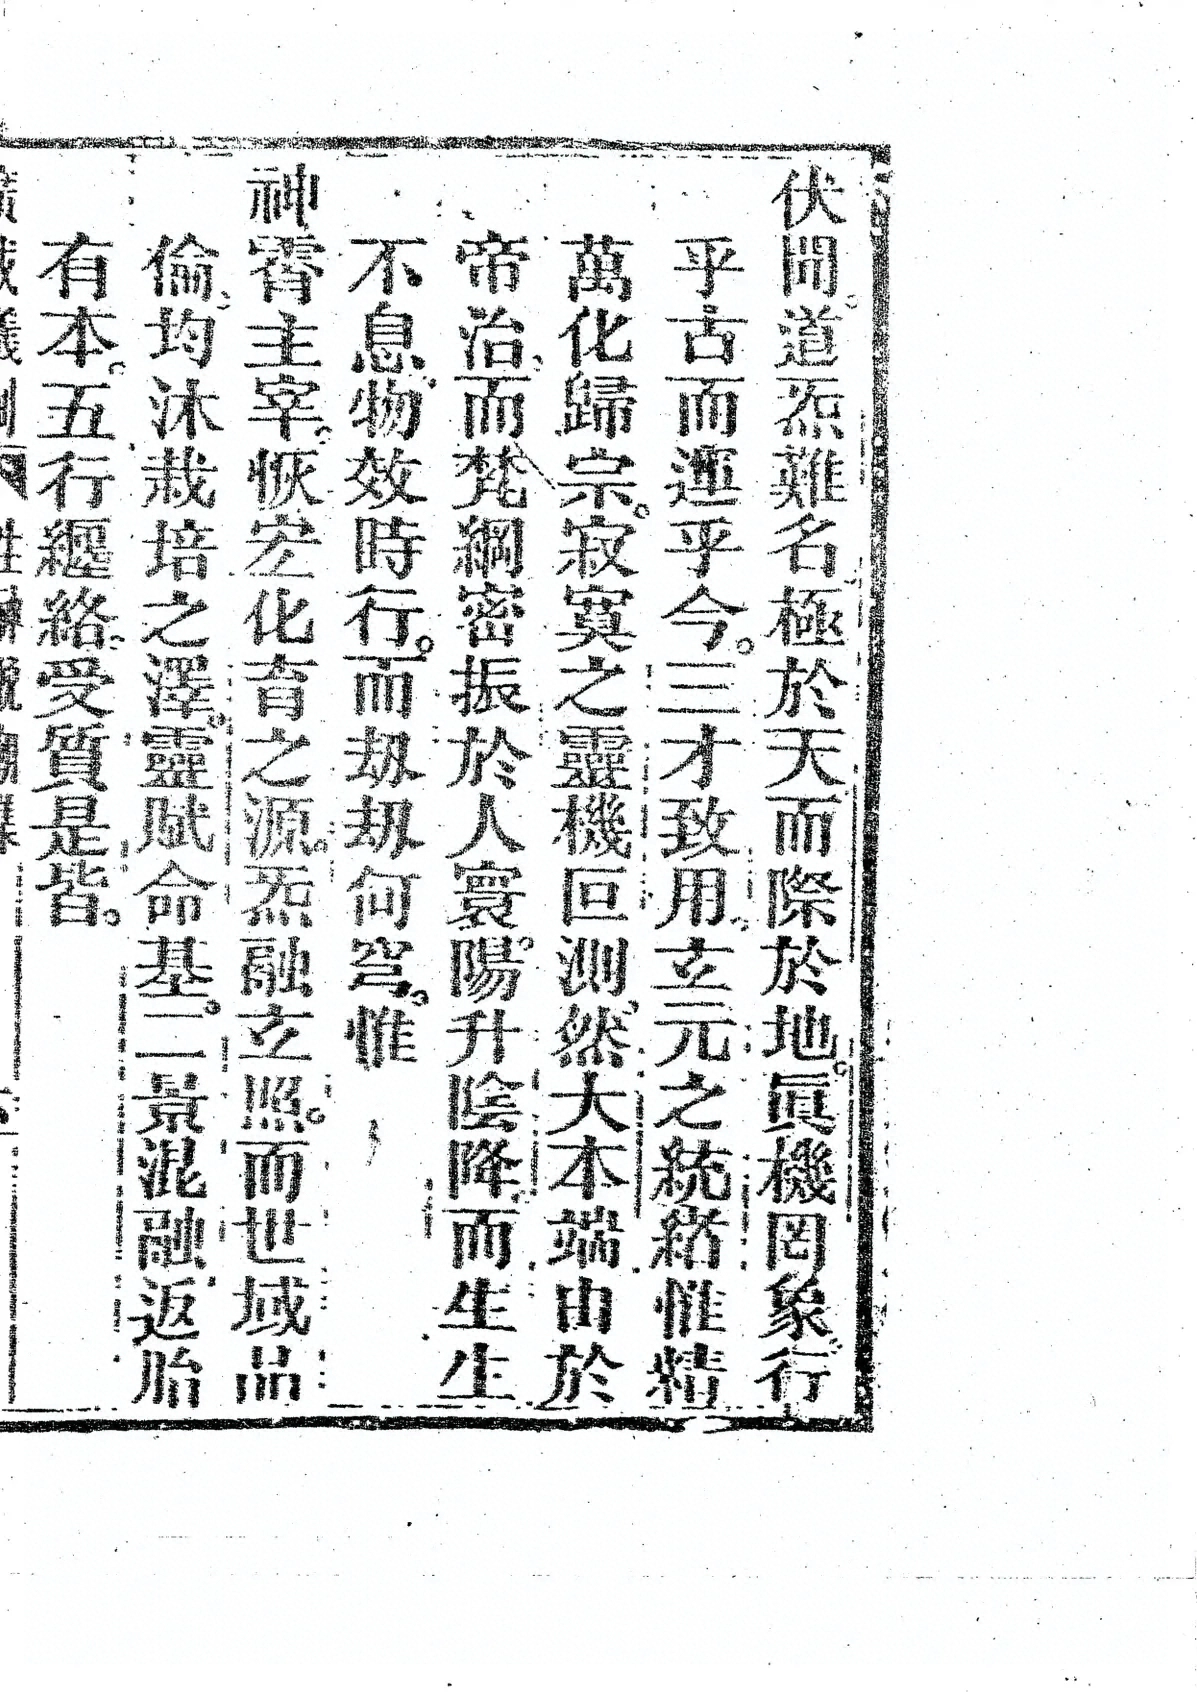 伏聞道炁難名極於天而際於地眞機罔象行
乎古而運乎今三才致用立元之統緒惟精
萬化歸宗寂寞之靈機叵測然大本端由於
帝治而梵綱密振於人寰陽升陰降而生生
不息物效時行而刼刼何窮惟
神霄主宰恢宏化育之源炁融立照而世域品
倫均沐栽培之澤靈賦命基二景混融返胎
有本五行纒絡受質是皆